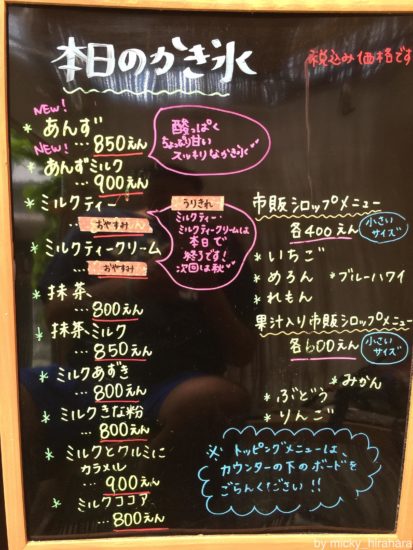 本日のかき氷
税込み価格です
NEW!
* あんず
… 850えん
酸っぱく
ちょっぴり甘い
スッキリなかき氷
NEW!
* あんずミルク
… 900えん
* ミルクティー
… おやすみ
* ミルクティークリーム
… おやすみ
うりきれ
ミルクティー
ミルクティークリームは
本日で
終了です!
次回は秋
* 抹茶
… 800えん
* 抹茶ミルク
… 850えん
* ミルクあずき
… 800えん
* ミルクきな粉
… 800えん
* ミルクとクルミに
カラメル
… 900えん
* ミルクココア
… 800えん
市販シロップメニュー
各400えん
小さい
サイズ
* いちご
* めろん
* ブルーハワイ
* れもん
果汁入り市販シロップメニュー
各600えん
小さい
サイズ
* みかん
* ぶどう
* りんご
※ トッピングメニューは、
カウンターの下のボードを
ごらんください!!
by micky_hirahara